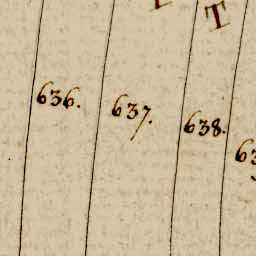 T
636. 637. 638. 63